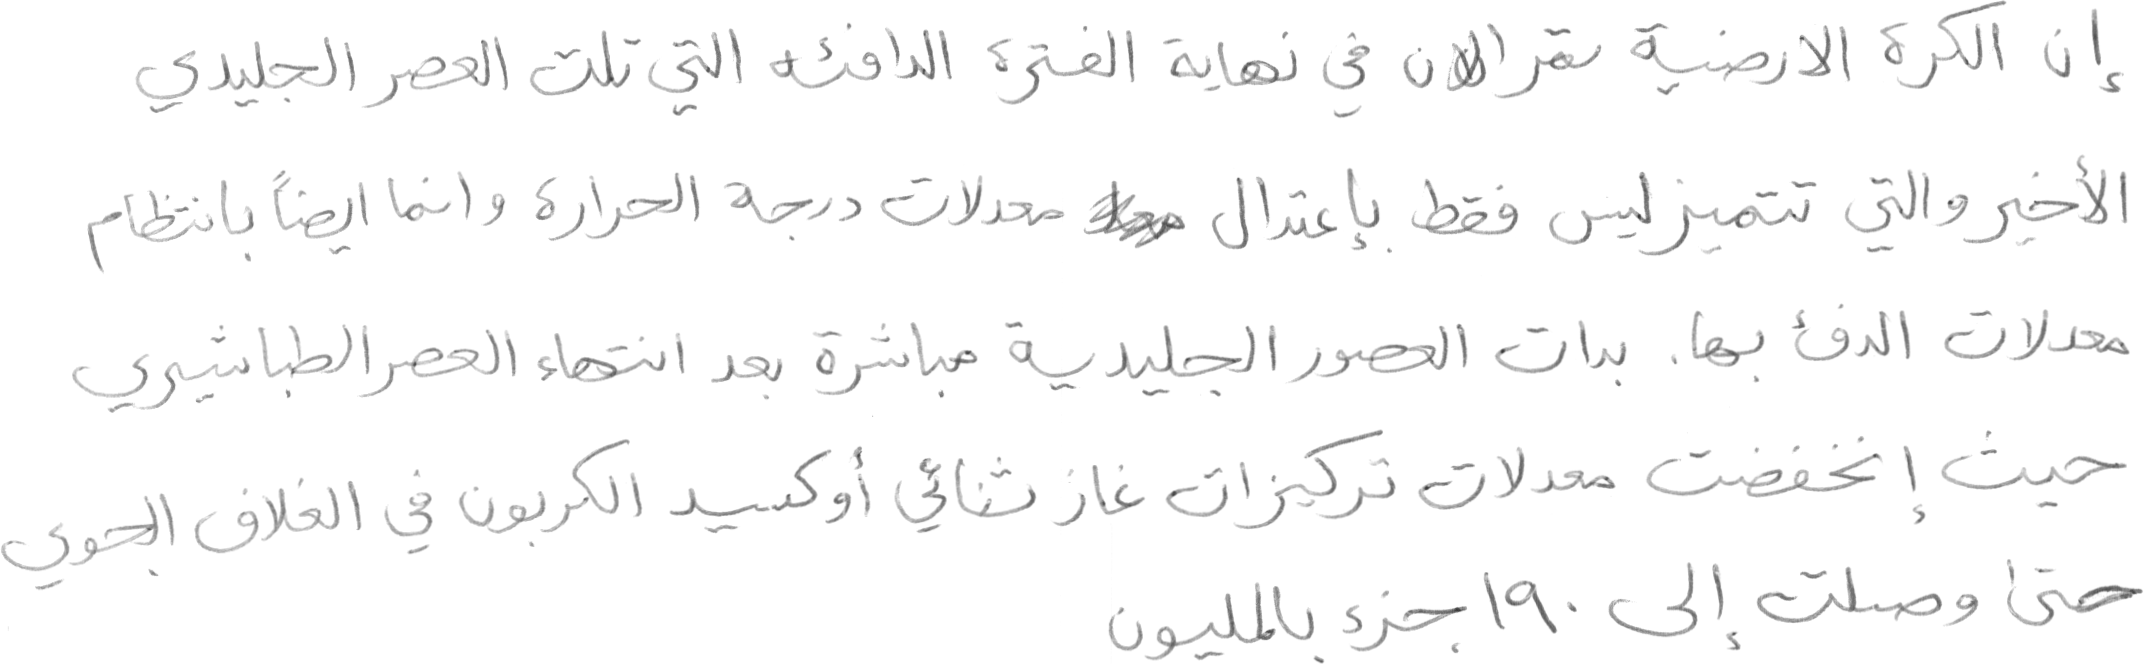 إن الكرة الارضية تمر الان في نهاية الفترة الدافئه التي تلت العصر الجليدي
الأخير والتي تتميز ليس فقط بإعتدال معدلات درجة الحرارة وانما ايضاً بانتظام
معدلات الدفئ بها. بدات العصور الجليدية مباشرة بعد انتهاء العصر الطباشيري
حيث إنخفضت معدلات تركيزات غاز ثنائي أوكسيد الكربون في الغلاف الجوي
حتى وصلت إلى ١٩٠ جزء بالمليون